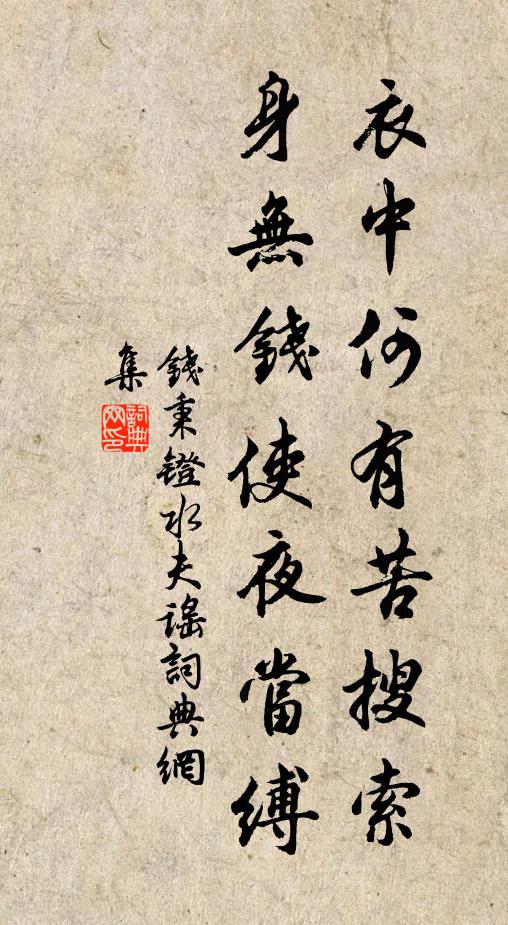 衣中何有苦搜索
身無錢使夜當縛
錢秉鐙水夫謠詞典網
集
詞典網印